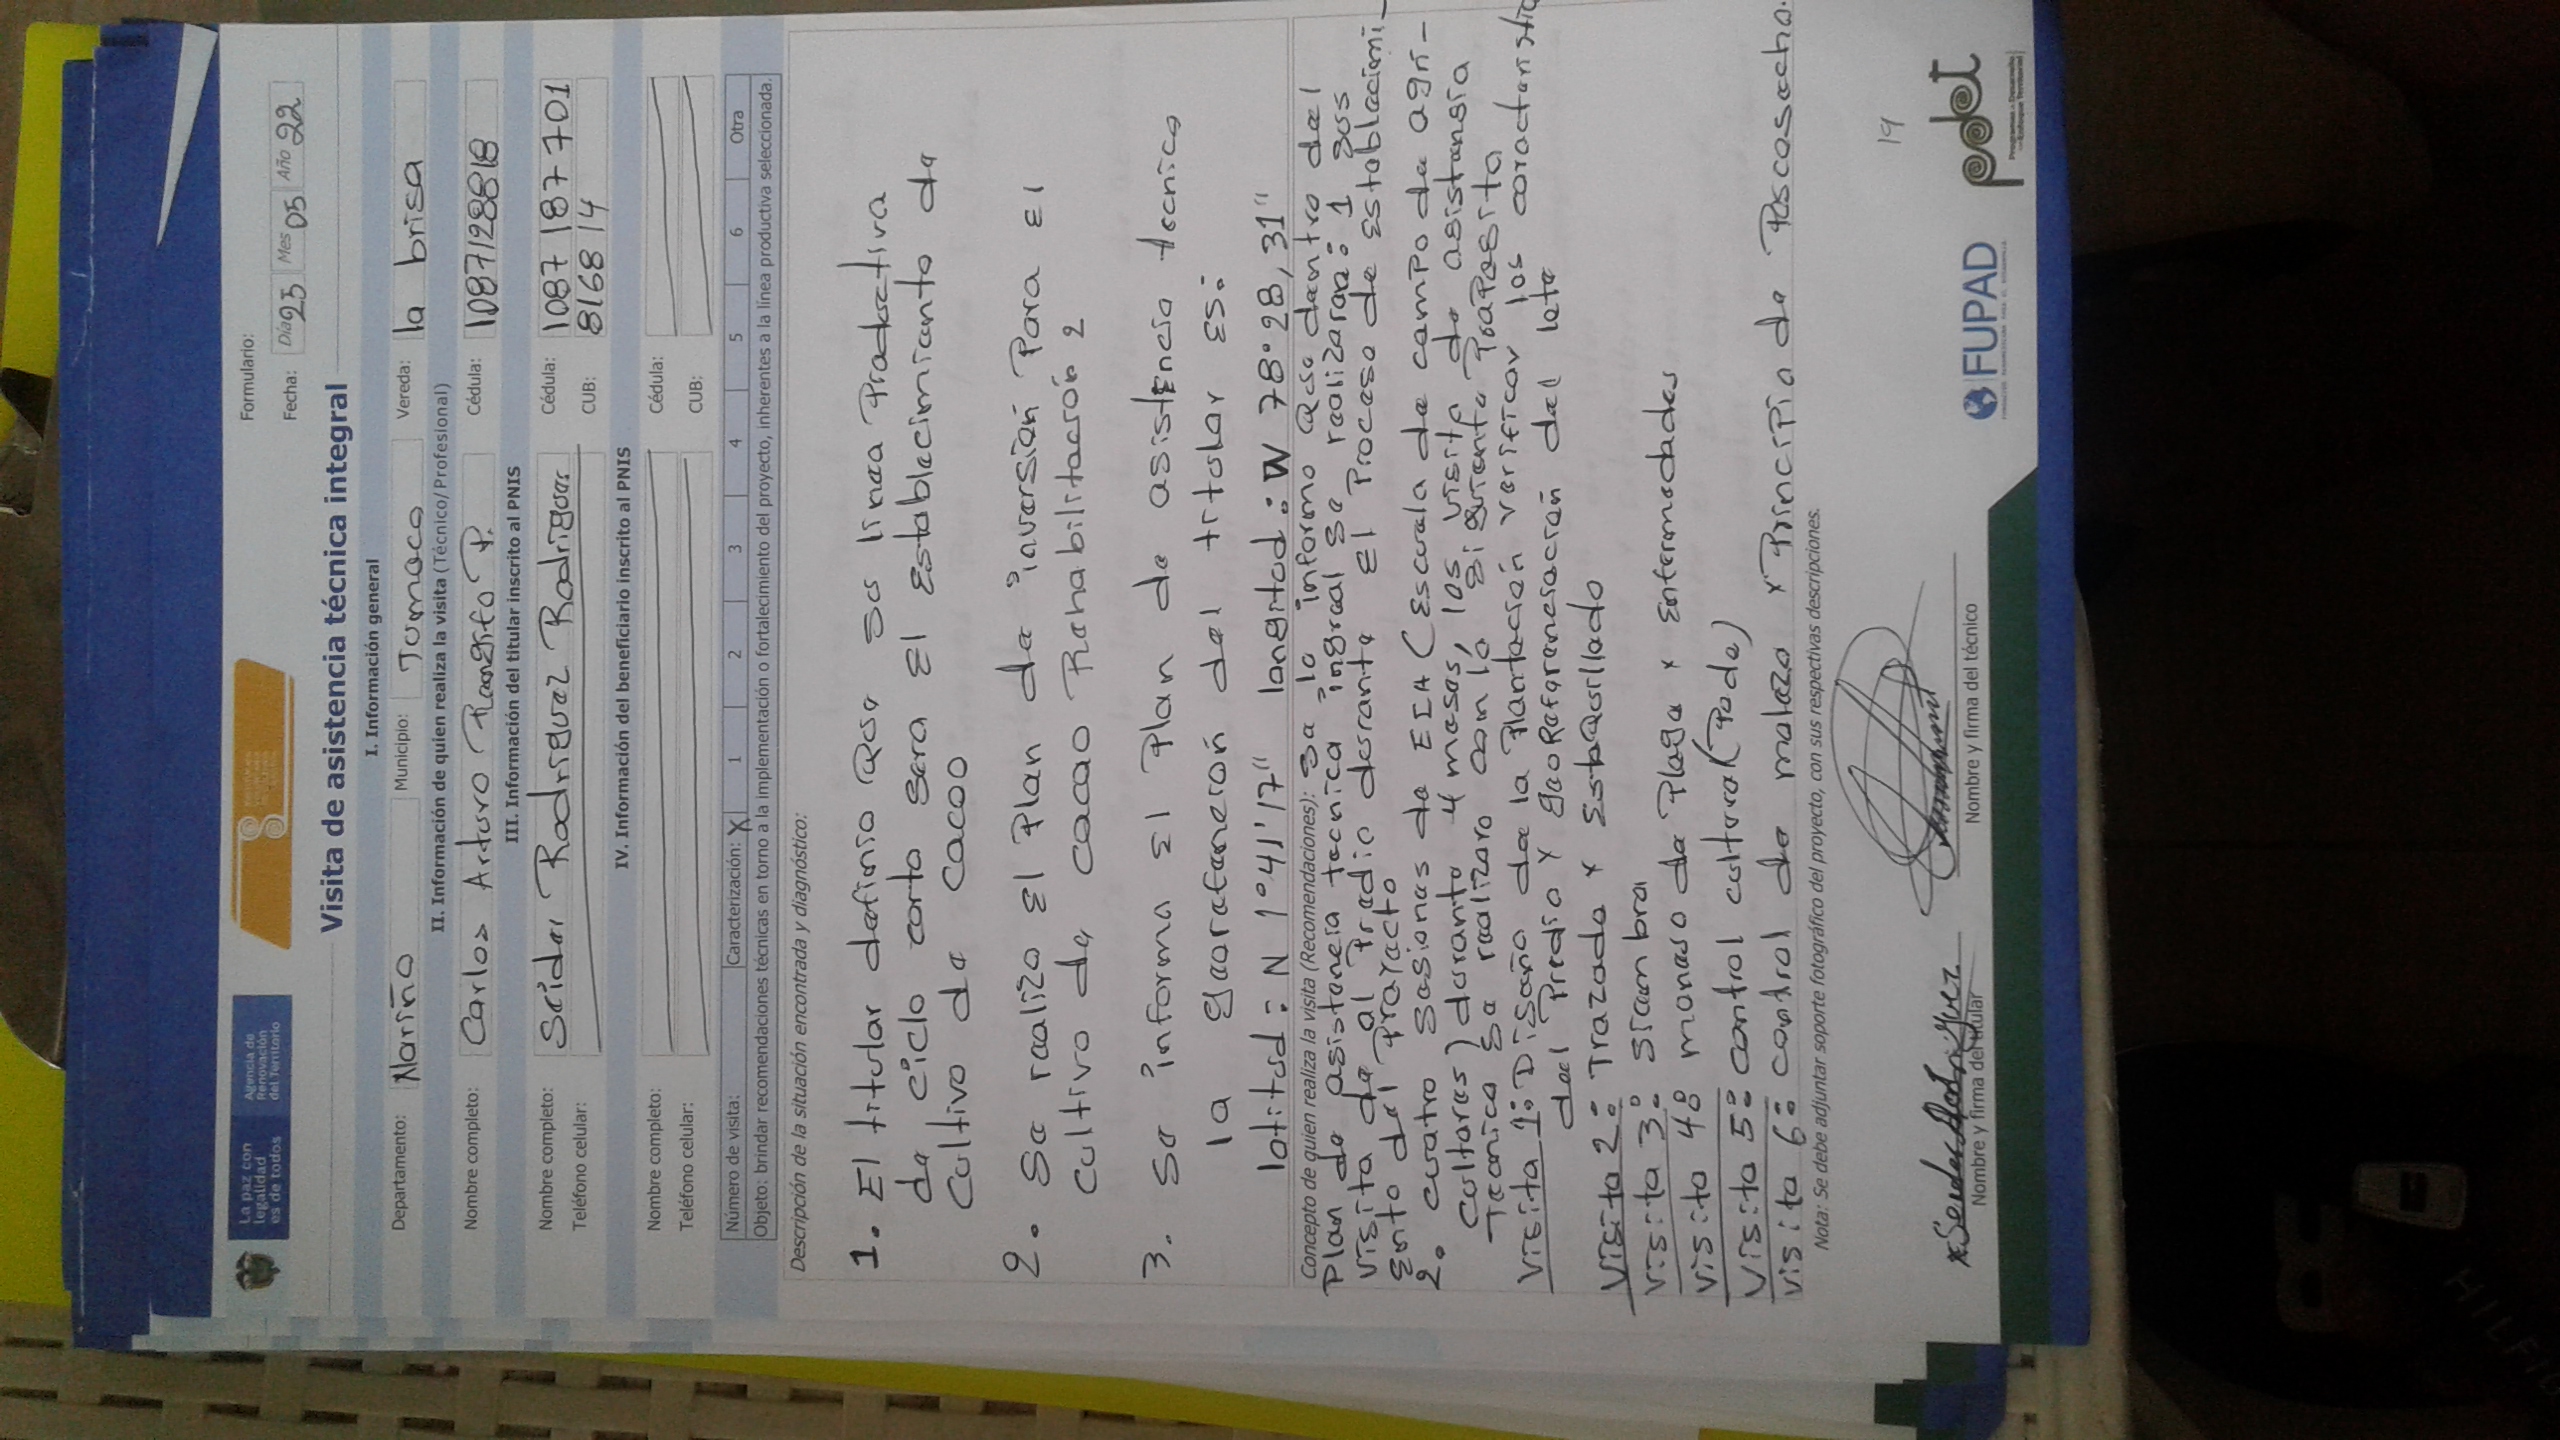 La paz con
legalidad
es de todos
Agencia de
Renovación
del Territorio
Formulario:
Fecha: Día 25 Mes 05 Año 22
Visita de asistencia técnica integral
I. Información general
Departamento: Nariño Municipio: Tumaco Vereda: la brisa
II. Información de quien realiza la visita (Técnico/Profesional)
Nombre completo: Carlos Arturo Rengifo P. Cédula: 1087128818
III. Información del titular inscrito al PNIS
Nombre completo: Seidar Rodriguez Rodriguez Cédula: 1087187701
Teléfono celular: CUB: 816814
IV. Información del beneficiario inscrito al PNIS
Nombre completo: Cédula:
Teléfono celular: CUB:
Número de visita: Caracterización: X 1 2 3 4 5 6 Otra
Objeto: brindar recomendaciones técnicas en torno a la implementación o fortalecimiento del proyecto, inherentes a la línea productiva seleccionada.
Descripción de la situación encontrada y diagnóstico:
1. El titular definio Que su linea Productiva
de ciclo corto sera El Establecimiento de
Cultivo de Cacao
2. Se realizo El Plan de inversión Para El
cultivo de cacao Rehabilitación 2
3. se informa El Plan de asistencia tecnica
la georefención del titular es:
latitud: N 1°41'17" longitud: W 78°28,31"
Concepto de quien realiza la visita (Recomendaciones): se le informo Que dentro del
Plan de asistencia tecnica ingral se realizara: 1 sus
visita de al Predio durante El Proceso de Establecimi-
Ento del Proyecto
2. cuatro sesiones de ECA (Escuela de campo de agri-
cultores) durante 4 meses, las visita de asistensia
Tecnica se realizara con lo siguiente Proposito
Visita 1: Diseño de la Plantación verificar las caracteristic
del Predio y geoReferenciación del lote
Visita 2: Trazado y Estaquillado
Visita 3: siembra
Visita 4: manejo de Plaga y Enfermedades
Visita 5: control cultural (Poda)
visita 6: control de maleza y Principio de Poscosecha.
Nota: Se debe adjuntar soporte fotográfico del proyecto, con sus respectivas descripciones.
19
Nombre y firma del titular
Nombre y firma del técnico
FUPAD
pdet
Programas de Desarrollo
con Enfoque Territorial
HILFI